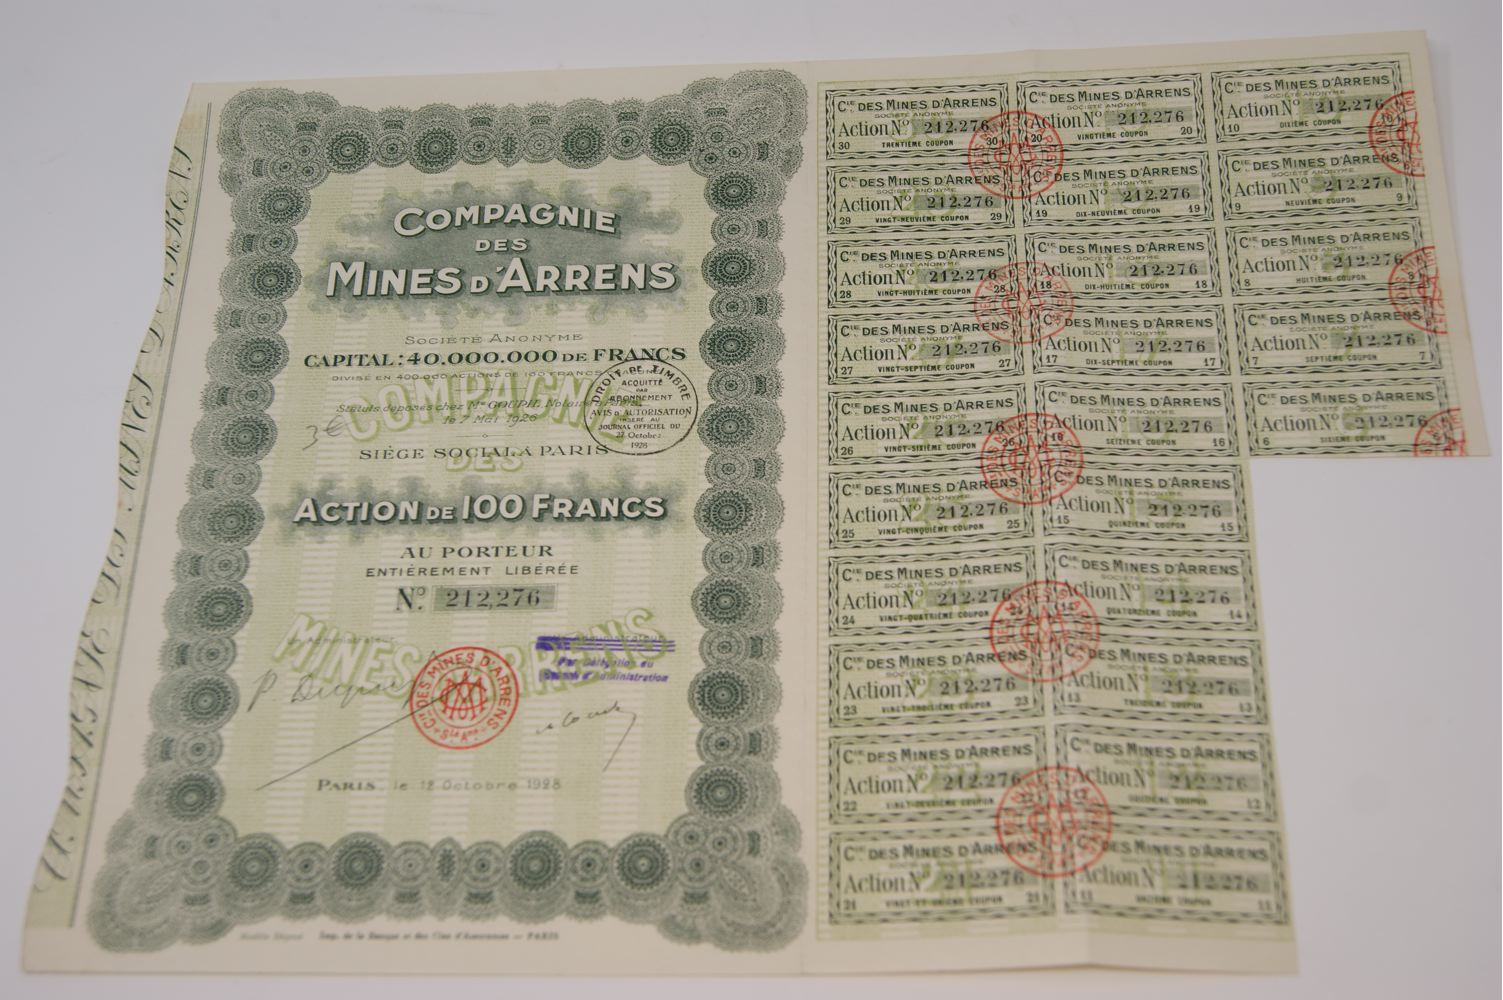 COMPAGNIE
DES
MINES D'ARRENS
SOCIÉTÉ ANONYME
CAPITAL: 40.000.000 DE FRANCS
DIVISÉ EN 400.000 ACTIONS DE 100 FRANCS
Statuts déposés chez Me GOUPIL Notaire
le 7 Mai 1926
3€
SIÈGE SOCIAL À PARIS
DROIT DE TIMBRE
ACQUITTÉ
PAR
ABONNEMENT
AVIS D'AUTORISATION
INSÉRÉ AU
JOURNAL OFFICIEL DU
27 Octobre
1928
COMPAGNIE
DES
MINES D'ARRENS
ACTION DE 100 FRANCS
AU PORTEUR
ENTIÈREMENT LIBÉRÉE
No. 212,276
Un Administrateur,
Un Administrateur
Par délégation du
Conseil d'Administration
Cie DES MINES D'ARRENS
Sté Ame
PARIS, le 12 Octobre 1928
Imp. de la Banque et des Cies d'Assurances — PARIS
Cie DES MINES D'ARRENS
SOCIÉTÉ ANONYME
Action No 212,276
30 TRENTIÈME COUPON 30
Cie DES MINES D'ARRENS
SOCIÉTÉ ANONYME
Action No 212,276
20 VINGTIÈME COUPON 20
Cie DES MINES D'ARRENS
SOCIÉTÉ ANONYME
Action No 212,276
10 DIXIÈME COUPON 10
Cie DES MINES D'ARRENS
SOCIÉTÉ ANONYME
Action No 212,276
29 VINGT-NEUVIÈME COUPON 29
Cie DES MINES D'ARRENS
SOCIÉTÉ ANONYME
Action No 212,276
19 DIX-NEUVIÈME COUPON 19
Cie DES MINES D'ARRENS
SOCIÉTÉ ANONYME
Action No 212,276
9 NEUVIÈME COUPON 9
Cie DES MINES D'ARRENS
SOCIÉTÉ ANONYME
Action No 212,276
28 VINGT-HUITIÈME COUPON 28
Cie DES MINES D'ARRENS
SOCIÉTÉ ANONYME
Action No 212,276
18 DIX-HUITIÈME COUPON 18
Cie DES MINES D'ARRENS
SOCIÉTÉ ANONYME
Action No 212,276
8 HUITIÈME COUPON 8
Cie DES MINES D'ARRENS
SOCIÉTÉ ANONYME
Action No 212,276
27 VINGT-SEPTIÈME COUPON 27
Cie DES MINES D'ARRENS
SOCIÉTÉ ANONYME
Action No 212,276
17 DIX-SEPTIÈME COUPON 17
Cie DES MINES D'ARRENS
SOCIÉTÉ ANONYME
Action No 212,276
7 SEPTIÈME COUPON 7
Cie DES MINES D'ARRENS
SOCIÉTÉ ANONYME
Action No 212,276
26 VINGT-SIXIÈME COUPON 26
Cie DES MINES D'ARRENS
SOCIÉTÉ ANONYME
Action No 212,276
16 SEIZIÈME COUPON 16
Cie DES MINES D'ARRENS
SOCIÉTÉ ANONYME
Action No 212,276
6 SIXIÈME COUPON 6
Cie DES MINES D'ARRENS
SOCIÉTÉ ANONYME
Action No 212,276
25 VINGT-CINQUIÈME COUPON 25
Cie DES MINES D'ARRENS
SOCIÉTÉ ANONYME
Action No 212,276
15 QUINZIÈME COUPON 15
Cie DES MINES D'ARRENS
SOCIÉTÉ ANONYME
Action No 212,276
24 VINGT-QUATRIÈME COUPON 24
Cie DES MINES D'ARRENS
SOCIÉTÉ ANONYME
Action No 212,276
14 QUATORZIÈME COUPON 14
Cie DES MINES D'ARRENS
SOCIÉTÉ ANONYME
Action No 212,276
23 VINGT-TROISIÈME COUPON 23
Cie DES MINES D'ARRENS
SOCIÉTÉ ANONYME
Action No 212,276
13 TREIZIÈME COUPON 13
Cie DES MINES D'ARRENS
SOCIÉTÉ ANONYME
Action No 212,276
22 VINGT-DEUXIÈME COUPON 22
Cie DES MINES D'ARRENS
SOCIÉTÉ ANONYME
Action No 212,276
12 DOUZIÈME COUPON 12
Cie DES MINES D'ARRENS
SOCIÉTÉ ANONYME
Action No 212,276
21 VINGT-ET-UNIÈME COUPON 21
Cie DES MINES D'ARRENS
SOCIÉTÉ ANONYME
Action No 212,276
11 ONZIÈME COUPON 11